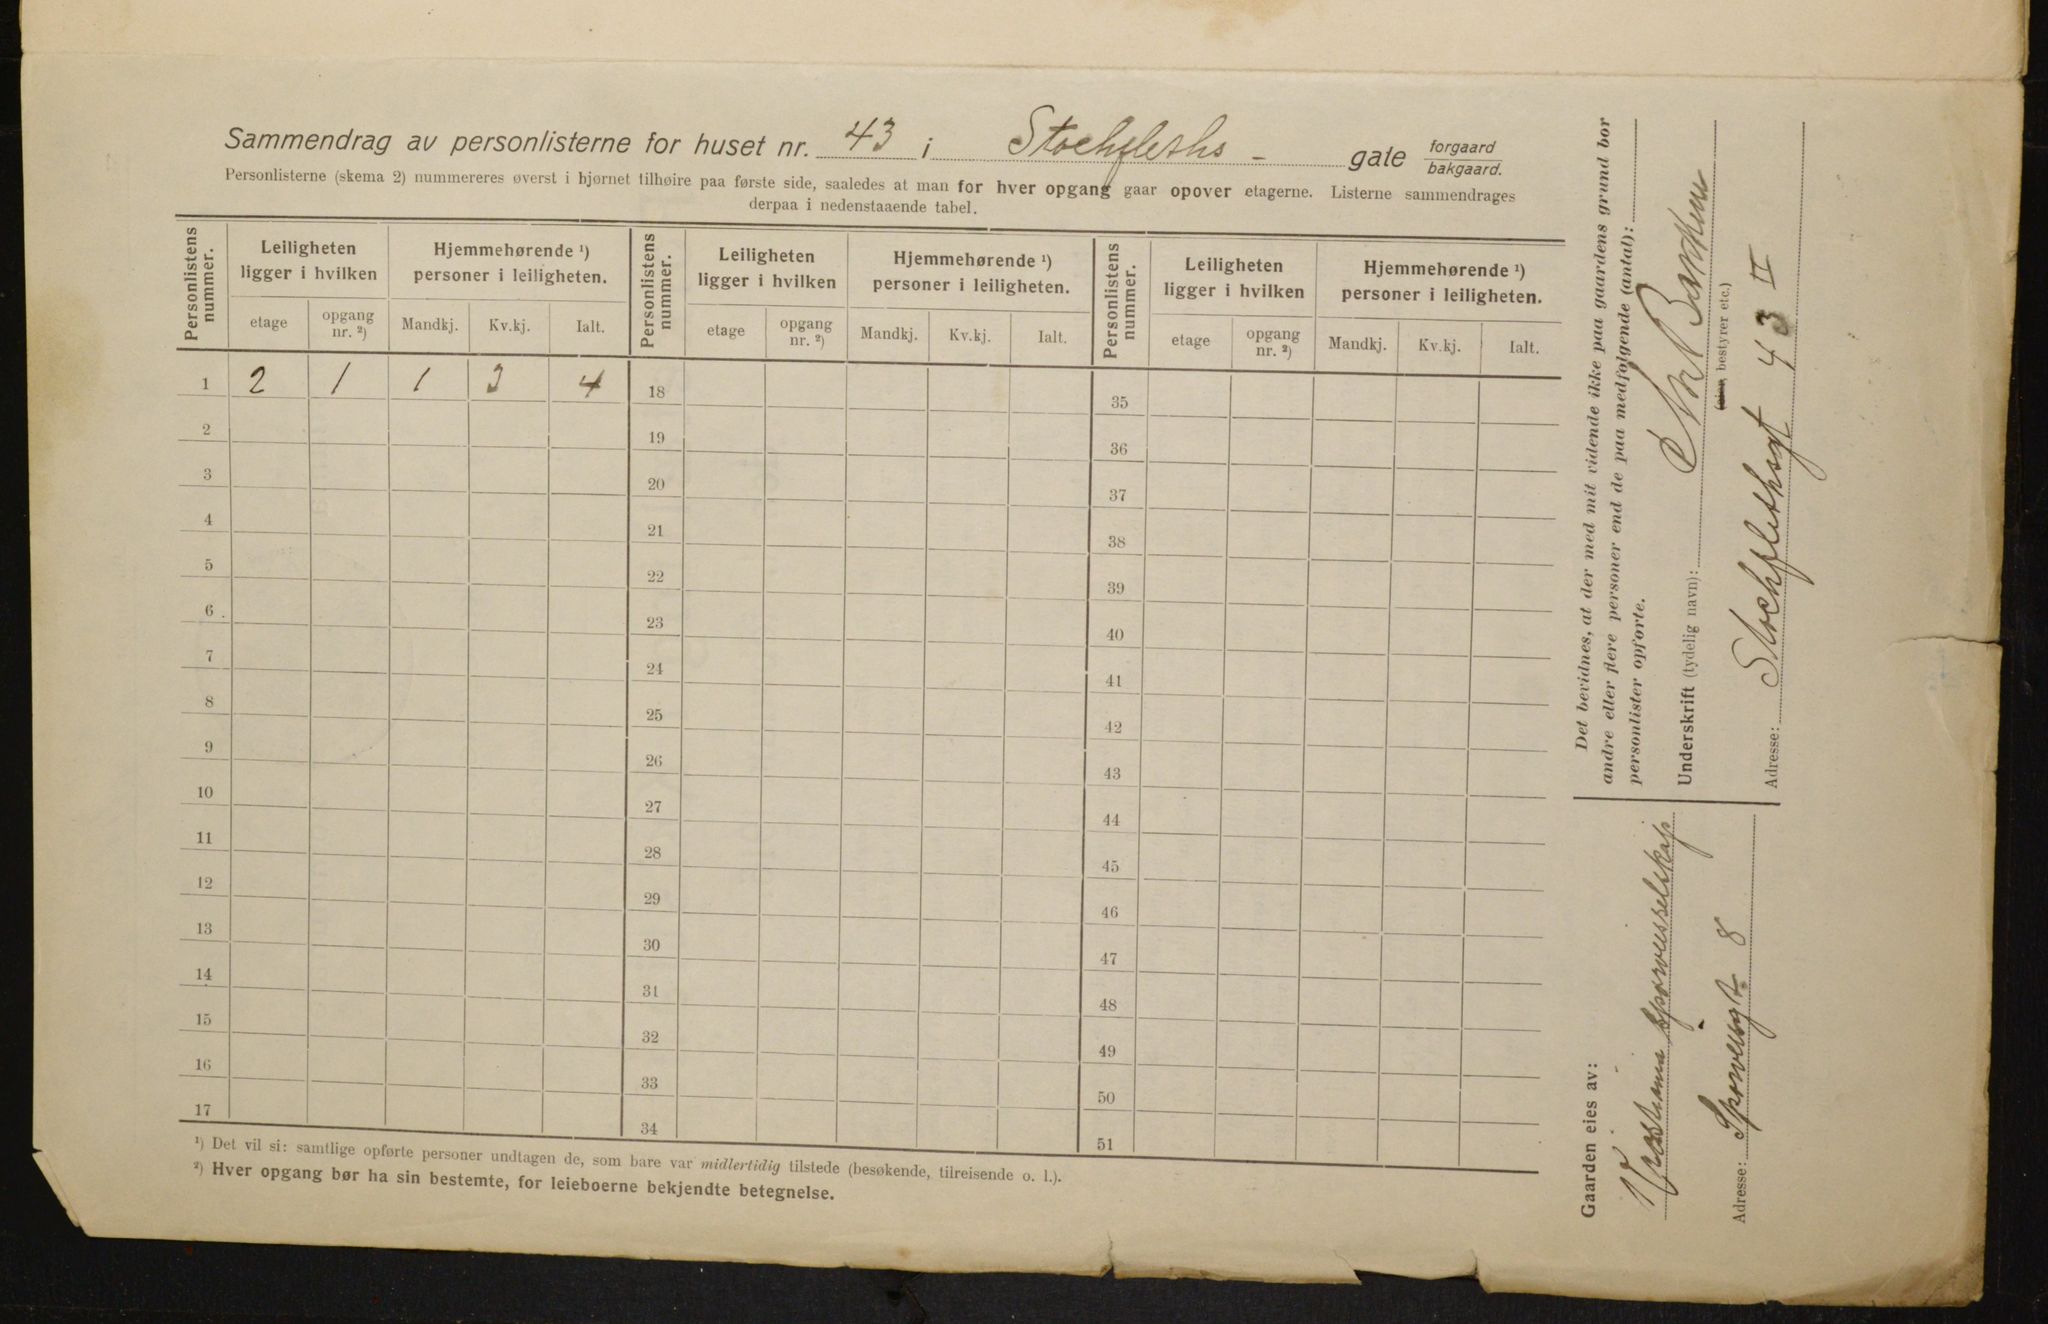 Sammendrag av personlisterne for huset nr. 43 i Stochfleths - gate forgaard bakgaard.
Personlisterne (skema 2) nummereres øverst i hjørnet tilhøire paa første side, saaledes at man for hver opgang gaar opover etagerne. Listerne sammendrages
derpaa i nedenstaaende tabel.
Personlistens nummer. Leiligheten ligger i hvilken Hjemmehørende ¹) personer i leiligheten. Personlistens nummer. Leiligheten ligger i hvilken Hjemmehørende ¹) personer i leiligheten. Personlistens nummer. Leiligheten ligger i hvilken Hjemmehørende ¹) personer i leiligheten.
etage opgang nr. ²) Mandkj. Kv.kj. Ialt. etage opgang nr. ²) Mandkj. Kv.kj. Ialt. etage opgang nr. ²) Mandkj. Kv.kj. Ialt.
1 2 1 1 3 4 18 35
2 19 36
3 20 37
4 21 38
5 22 39
6 23 40
7 24 41
8 25 42
9 26 43
10 27 44
11 28 45
12 29 46
13 30 47
14 31 48
15 32 49
16 33 50
17 34 51
¹) Det vil si: samtlige opførte personer undtagen de, som bare var midlertidig tilstede (besøkende, tilreisende o. l.).
²) Hver opgang bør ha sin bestemte, for leieboerne bekjendte betegnelse.
Det bevidnes, at der med mit vidende ikke paa gaardens grund bor
andre eller flere personer end de paa medfølgende (antal):
personlister opførte.
Underskrift (tydelig navn):
(eier, bestyrer etc.)
Adresse: Stochflethsgt 43 II
Gaarden eies av:
Kristiania Sporveisselskap
Adresse: Sporveisgt 8